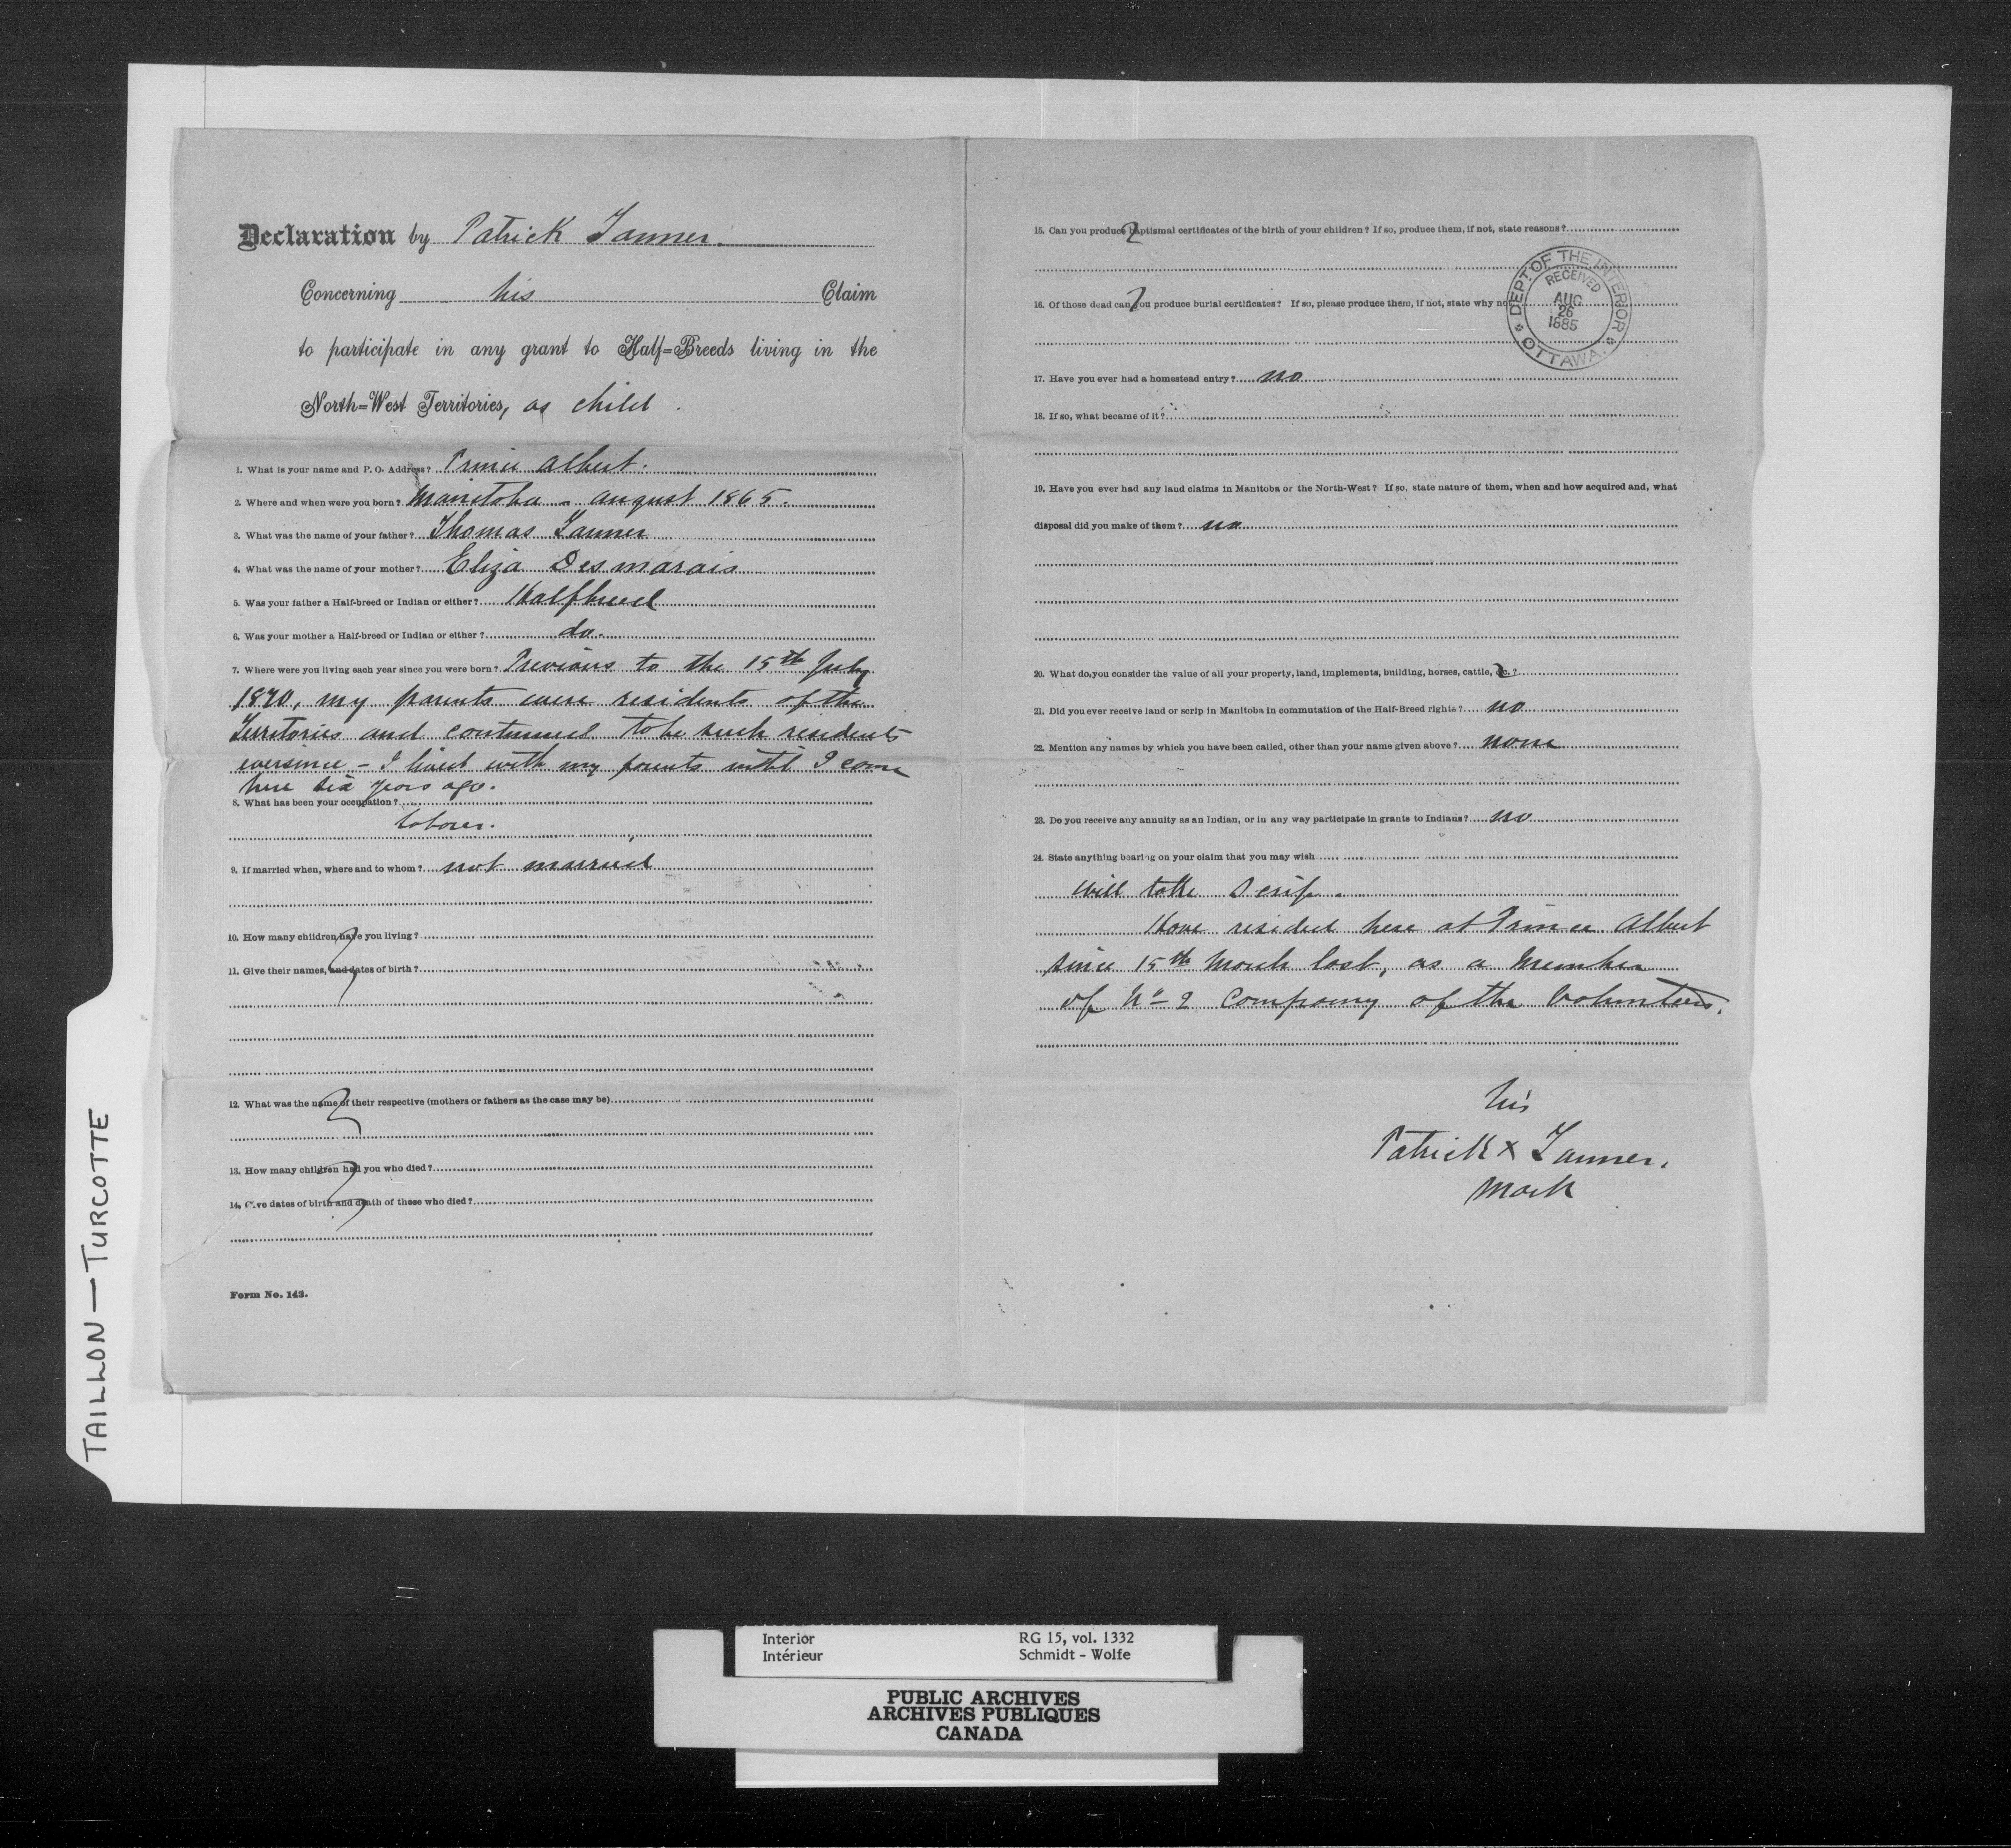 Declaration by Patrick Tanner.
Concerning his Claim
to participate in any grant to Half=Breeds living in the
North=West Territories, as child.
1. What is your name and P. O. Address? Prince Albert.
2. Where and when were you born? Manitoba - august 1865.
3. What was the name of your father? Thomas Tanner
4. What was the name of your mother? Eliza Desmarais
5. Was your father a Half-breed or Indian or either? Halfbreed
6. Was your mother a Half-breed or Indian or either? do.
7. Where were you living each year since you were born? Previous to the 15th July
1870, my parents were residents of the
Territories and continued to be such residents
eversince - I lived with my parents until I came
here six years ago.
8. What has been your occupation?
laborer.
9. If married when, where and to whom? not married
10. How many children have you living?
11. Give their names, and dates of birth?
12. What was the name of their respective (mothers or fathers as the case may be)
13. How many children had you who died?
14. Give dates of birth and death of those who died?
Form No. 143.
15. Can you produce baptismal certificates of the birth of your children? If so, produce them, if not, state reasons?
16. Of those dead can you produce burial certificates? If so, please produce them, if not, state why not
DEPT. OF THE INTERIOR
RECEIVED
AUG
26
1885
OTTAWA.
17. Have you ever had a homestead entry? no
18. If so, what became of it?
19. Have you ever had any land claims in Manitoba or the North-West? If so, state nature of them, when and how acquired and, what
disposal did you make of them? no
20. What do you consider the value of all your property, land, implements, building, horses, cattle, &c.?
21. Did you ever receive land or scrip in Manitoba in commutation of the Half-Breed rights? no
22. Mention any names by which you have been called, other than your name given above? none
23. Do you receive any annuity as an Indian, or in any way participate in grants to Indians? no
24. State anything bearing on your claim that you may wish
Will take Scrip.
Have resided here at Prince Albert
since 15th March last, as a Member
of No 2 Company of the Volunteers.
his
Patrick x Tanner.
mark
TAILLON — TURCOTTE
Interior RG 15, vol. 1332
Intérieur Schmidt - Wolfe
PUBLIC ARCHIVES
ARCHIVES PUBLIQUES
CANADA